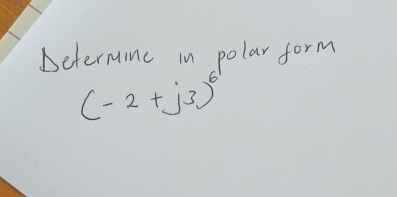 Determine in polar form
(-2+j3)⁶